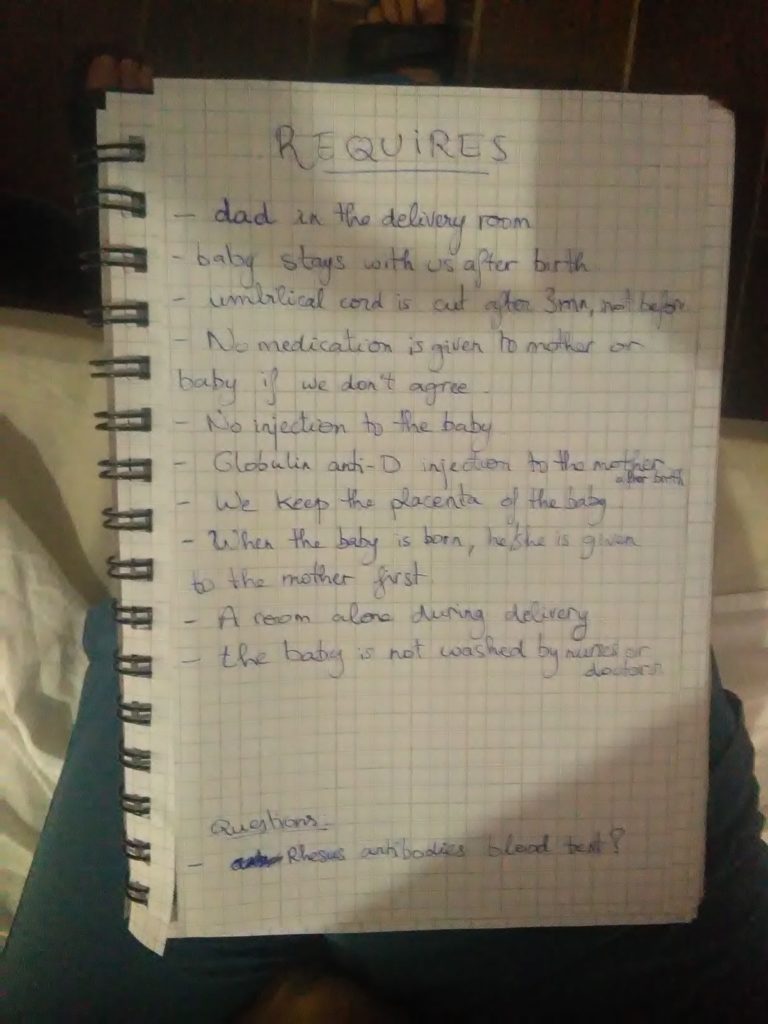 REQUIRES
- dad in the delivery room
- baby stays with us after birth.
- umbilical cord is cut after 3mn, not before
- No medication is given to mother or
baby if we don't agree.
- No injection to the baby
- Globulin anti-D injection to the mother
after birth
- We keep the placenta of the baby
- When the baby is born, he/she is given
to the mother first.
- A room alone during delivery
- the baby is not washed by nurses or
doctors
Questions -
- Rhesus antibodies blood test?